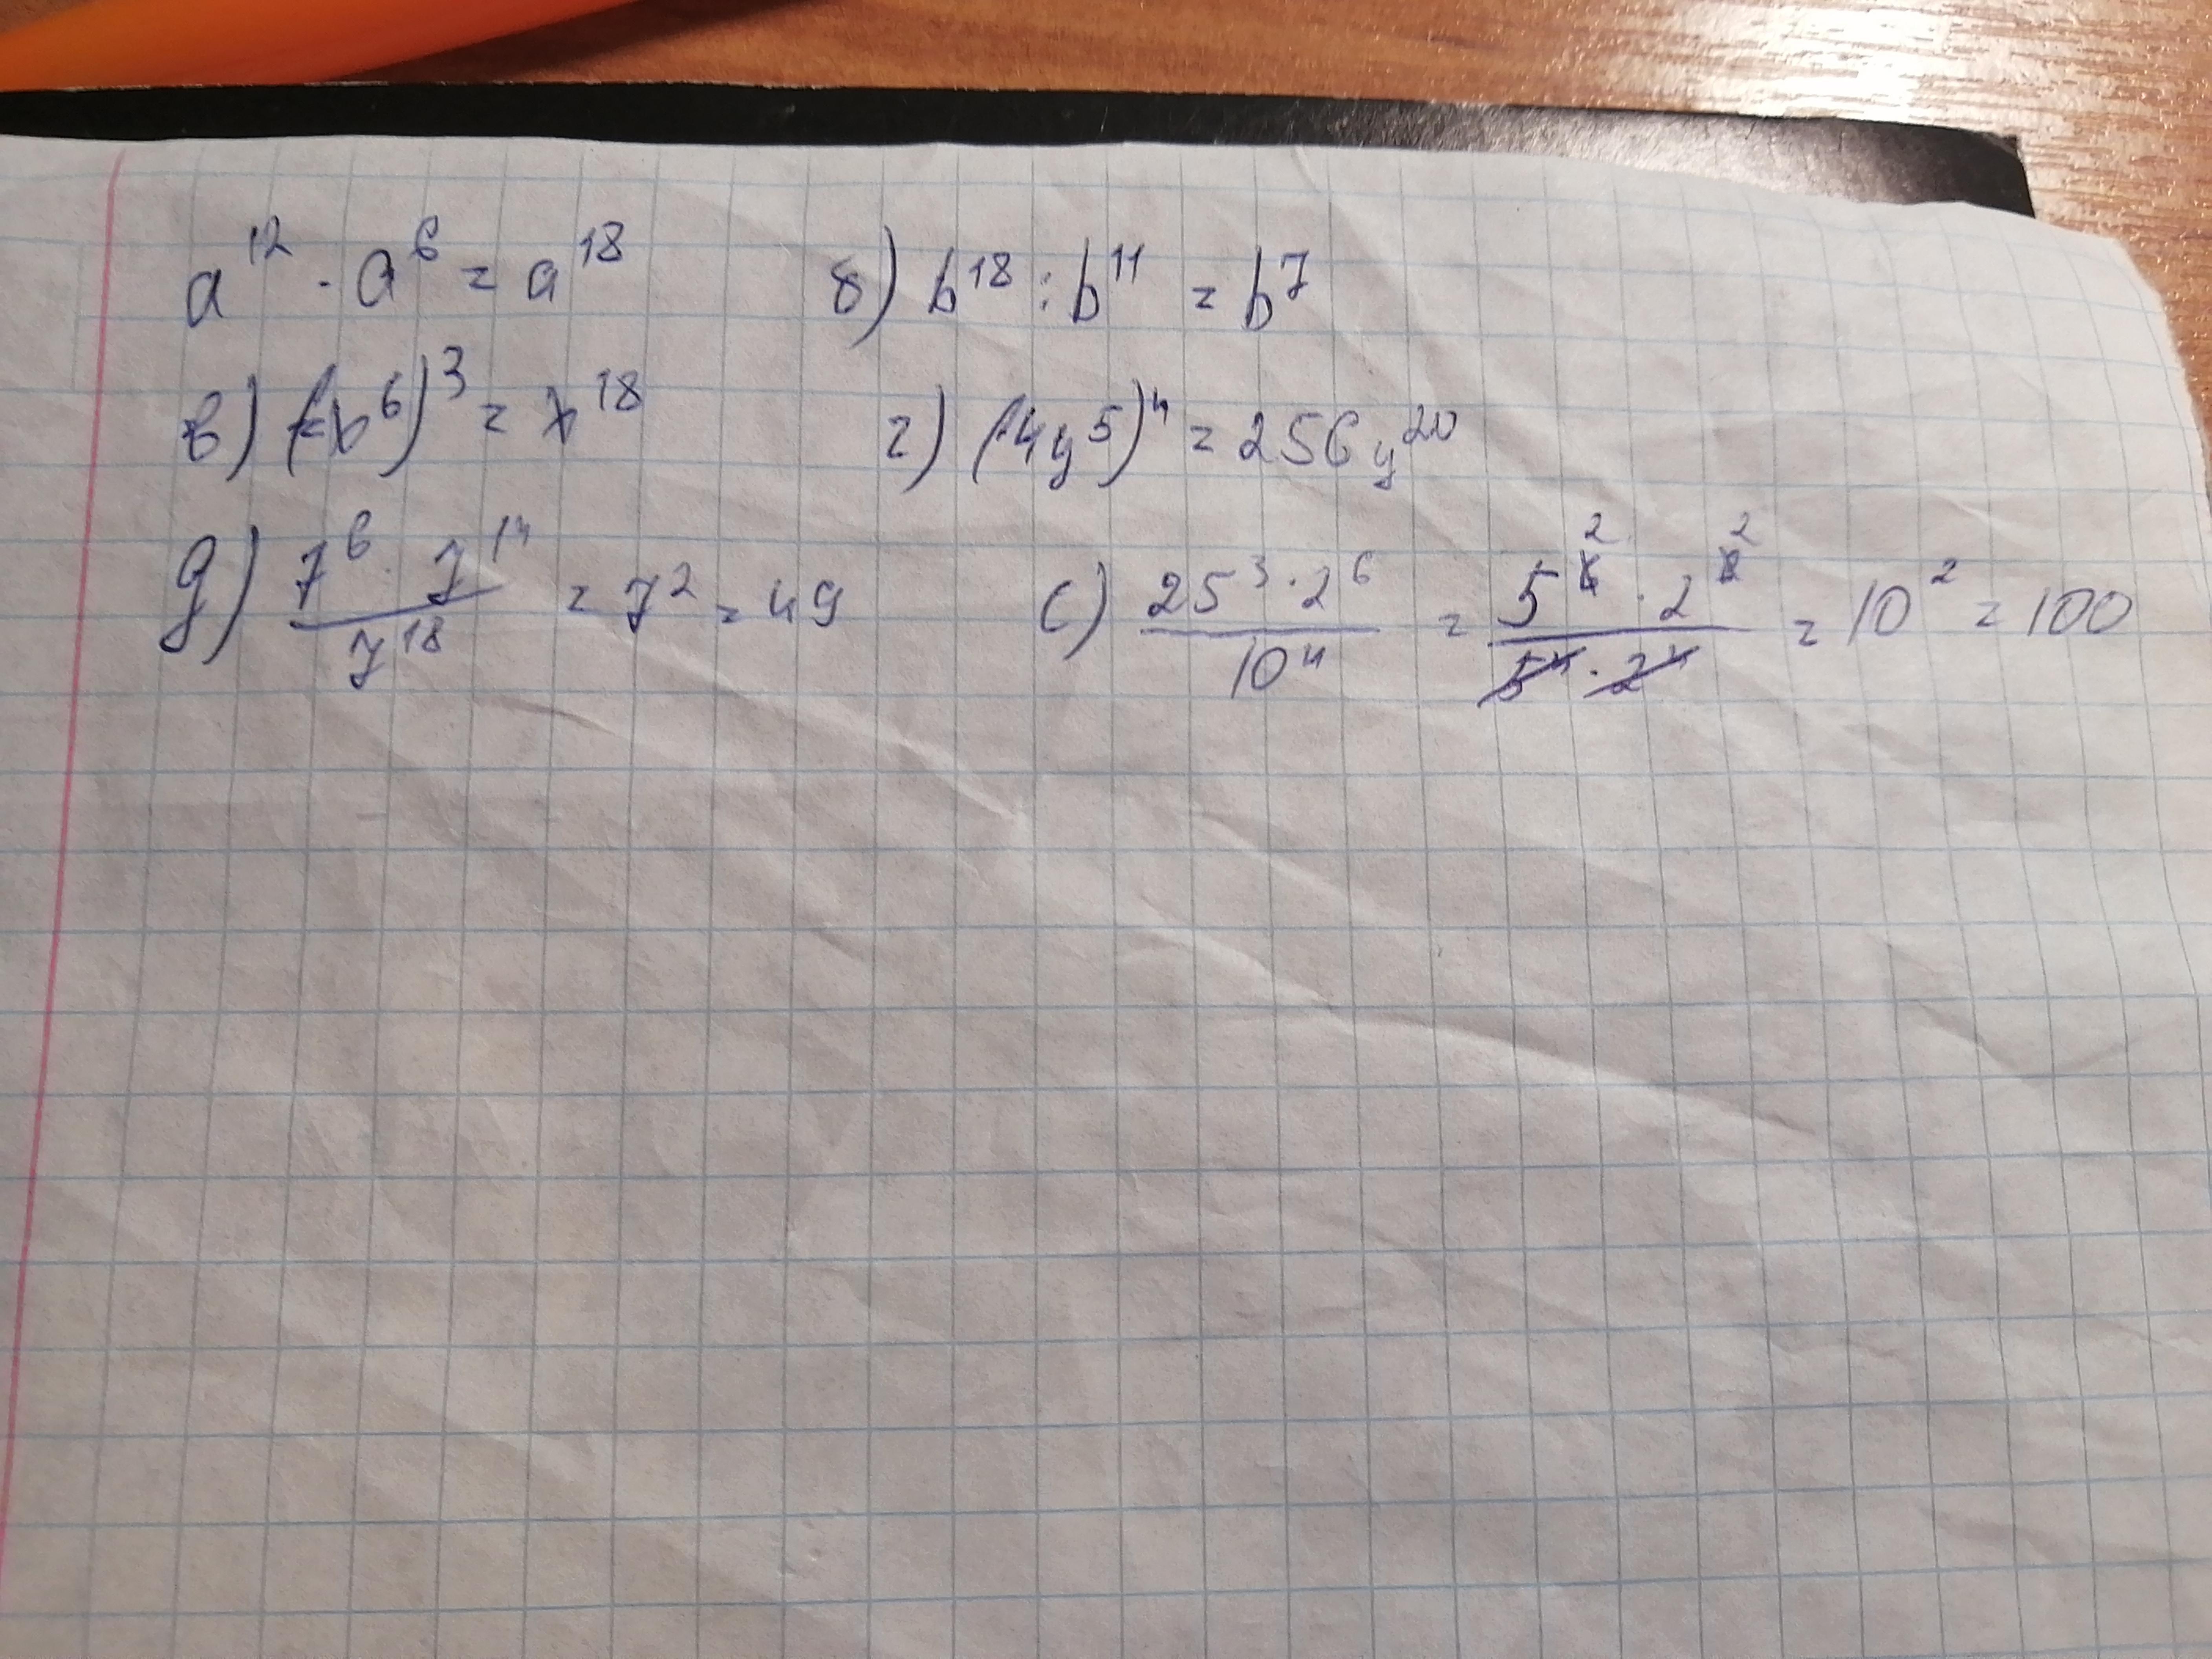 a¹² · a⁶ = a¹⁸ б) b¹⁸ : b¹¹ = b⁷
в) (-x⁶)³ = x¹⁸ г) (-4y⁵)⁴ = 256y²⁰
д) 7⁶ · 7¹⁴ / 7¹⁸ = 7² = 49 е) 25³ · 2⁶ / 10⁴ = 5² · 2² / 5⁴ · 2⁴ = 10² = 100